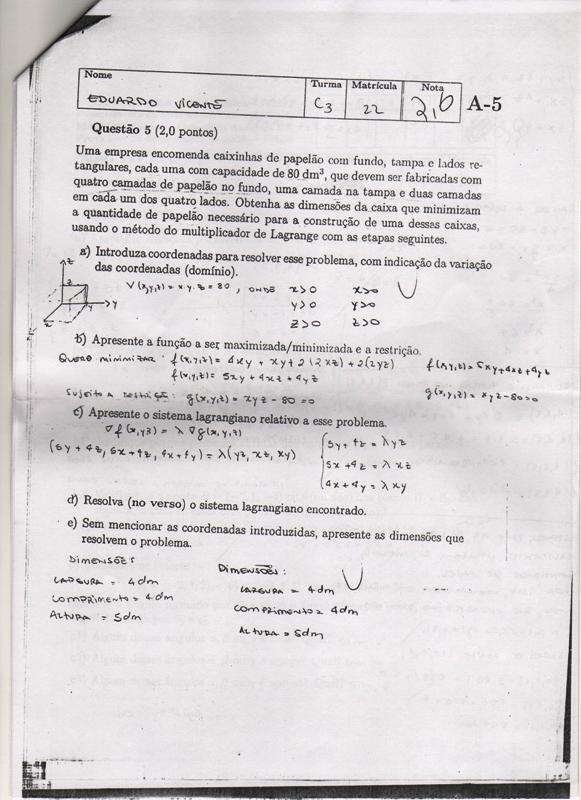 Nome Turma Matrícula Nota
EDUARDO VICENTE C3 22 2,0 A-5
Questão 5 (2,0 pontos)
Uma empresa encomenda caixinhas de papelão com fundo, tampa e lados re-
tangulares, cada uma com capacidade de 80 dm³, que devem ser fabricadas com
quatro camadas de papelão no fundo, uma camada na tampa e duas camadas
em cada um dos quatro lados. Obtenha as dimensões da caixa que minimizam
a quantidade de papelão necessário para a construção de uma dessas caixas,
usando o método do multiplicador de Lagrange com as etapas seguintes.
a) Introduza coordenadas para resolver esse problema, com indicação da variação
das coordenadas (domínio).
V(x,y,z) = x.y.z = 80, ONDE x>0 x>0
y>0 y>0
z>0 z>0
z
y
x
b) Apresente a função a ser maximizada/minimizada e a restrição.
QUERO MINIMIZAR: f(x,y,z) = 4xy + xy + 2(2xz) + 2(2yz) f(x,y,z) = 5xy+4xz+4yz
f(x,y,z) = 5xy + 4xz + 4yz
SUJEITO A RESTRIÇÃO: g(x,y,z) = xyz - 80 = 0 g(x,y,z) = xyz-80=0
c) Apresente o sistema lagrangiano relativo a esse problema.
∇f(x,y,z) = λ ∇g(x,y,z)
(5y + 4z, 5x + 4z, 4x + 4y) = λ(yz, xz, xy)
5y + 4z = λyz
5x + 4z = λxz
4x + 4y = λxy
d) Resolva (no verso) o sistema lagrangiano encontrado.
e) Sem mencionar as coordenadas introduzidas, apresente as dimensões que
resolvem o problema.
DIMENSÕES:
LARGURA = 4dm
COMPRIMENTO = 4dm
ALTURA = 5dm
DIMENSÕES:
LARGURA = 4dm
COMPRIMENTO = 4dm
ALTURA = 5dm